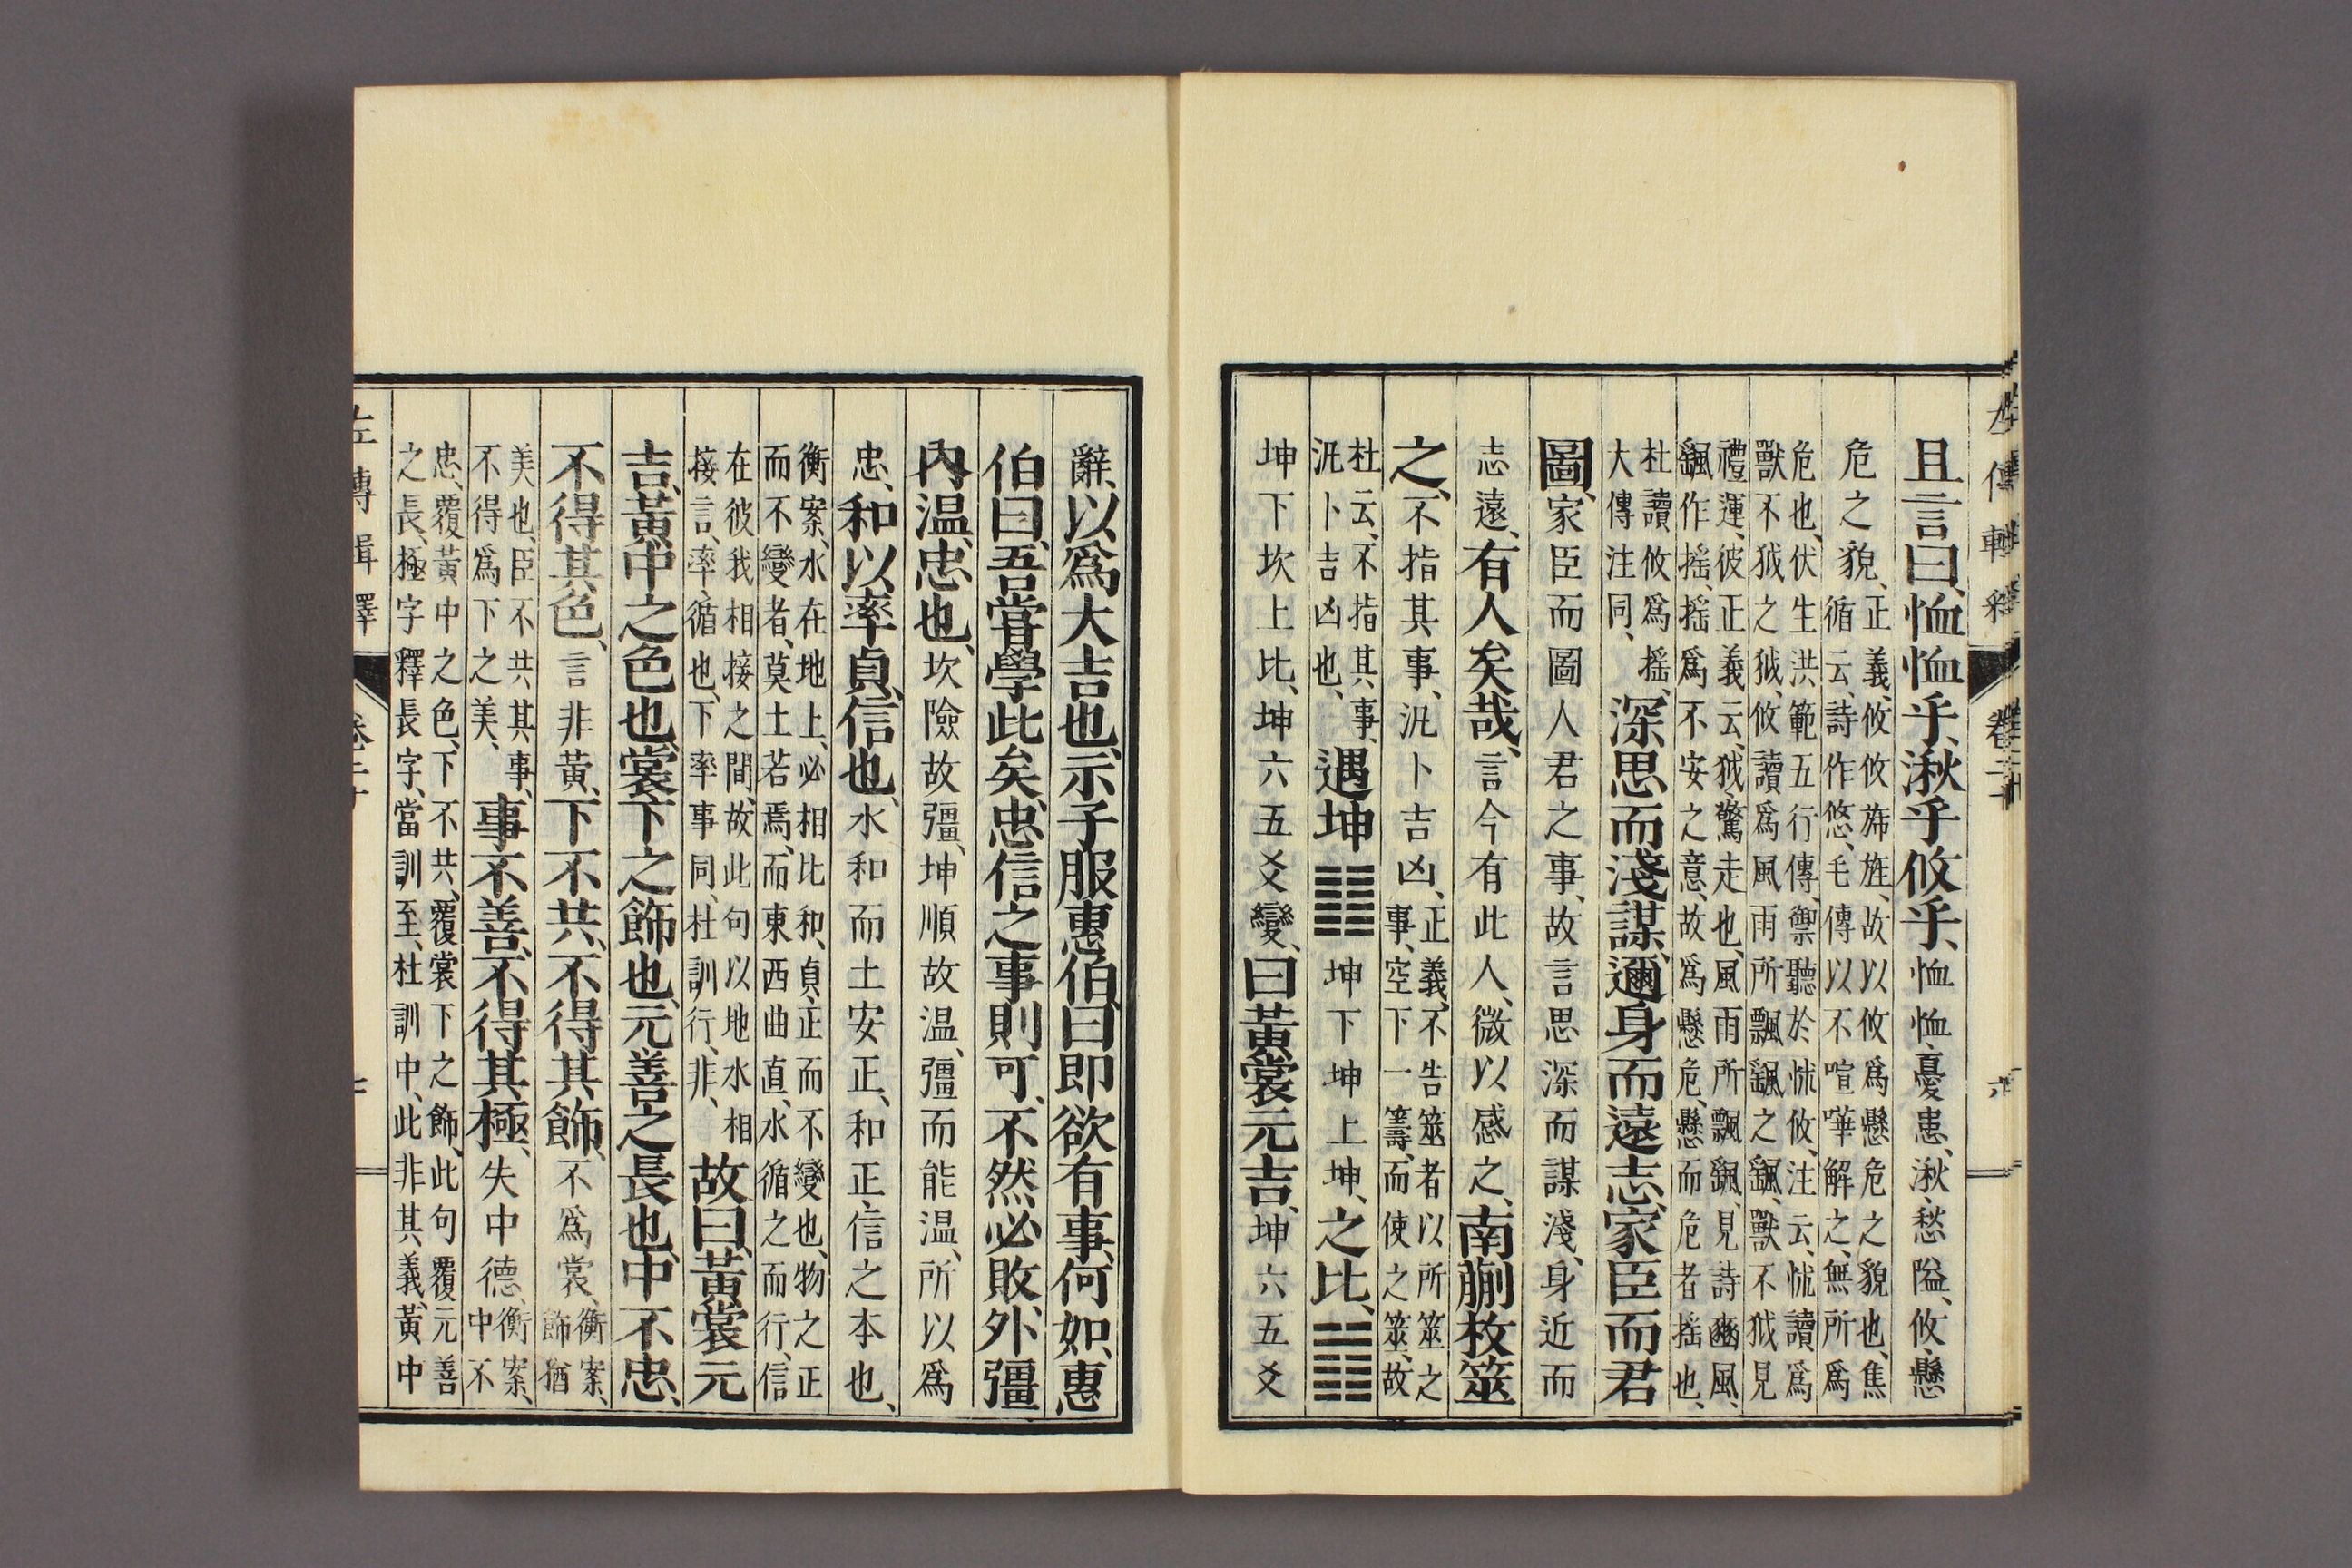 左傳輯釋 卷二十 六
且言曰、恤恤乎、湫乎攸乎、恤恤、憂患、湫、愁隘、攸、懸
危之貌、正義、攸攸旆旌、故以攸爲懸危之貌也、焦
循云、詩作悠、毛傳以不喧嘩解之、無所爲
危也、伏生洪範五行傳、禦聽於怵攸、注云、怵讀爲
獸不狘之狘、攸讀爲風雨所飄䬙之䬙、獸不狘見
禮運、彼正義云、狘、驚走也、風雨所飄䬙、見詩豳風、
䬙作搖、搖爲不安之意、故爲懸危、懸而危者搖也、
杜讀攸爲搖、
大傳注同、深思而淺謀、邇身而遠志、家臣而君
圖、家臣而圖人君之事、故言思深而謀淺、身近而
志遠、有人矣哉、言今有此人、微以感之、南蒯枚筮
之、不指其事、汎卜吉凶、正義、不告筮者以所筮之
事、空下一籌、而使之筮、故
杜云、不指其事、
汎卜吉凶也、遇坤䷁坤下坤上坤、之比、䷇
坤下坎上比、坤六五爻變、曰黃裳元吉、坤六五爻
辭、以爲大吉也、示子服惠伯、曰、即欲有事、何如、惠
伯曰、吾嘗學此矣、忠信之事則可、不然必敗、外彊
內温、忠也、坎險故彊、坤順故温、彊而能温、所以爲
忠、和以率貞、信也、水和而土安正、和正、信之本也、
衡案、水在地上、必相比和、貞、正而不變也、物之正
而不變者、莫土若焉、而東西曲直、水循之而行、信
在彼我相接之間、故此句以地水相
接言、率、循也、下率事同、杜訓行、非、故曰、黃裳元
吉、黃、中之色也、裳、下之飾也、元、善之長也、中不忠、
不得其色、言非黃、下不共、不得其飾、不爲裳、衡案、
飾猶
美也、臣不共其事、
不得爲下之美、事不善、不得其極、失中德、衡案、
中不
忠、覆黃中之色、下不共、覆裳下之飾、此句覆元善
之長、極字釋長字、當訓至、杜訓中、此非其義、黃中
左傳輯釋 卷二十 七